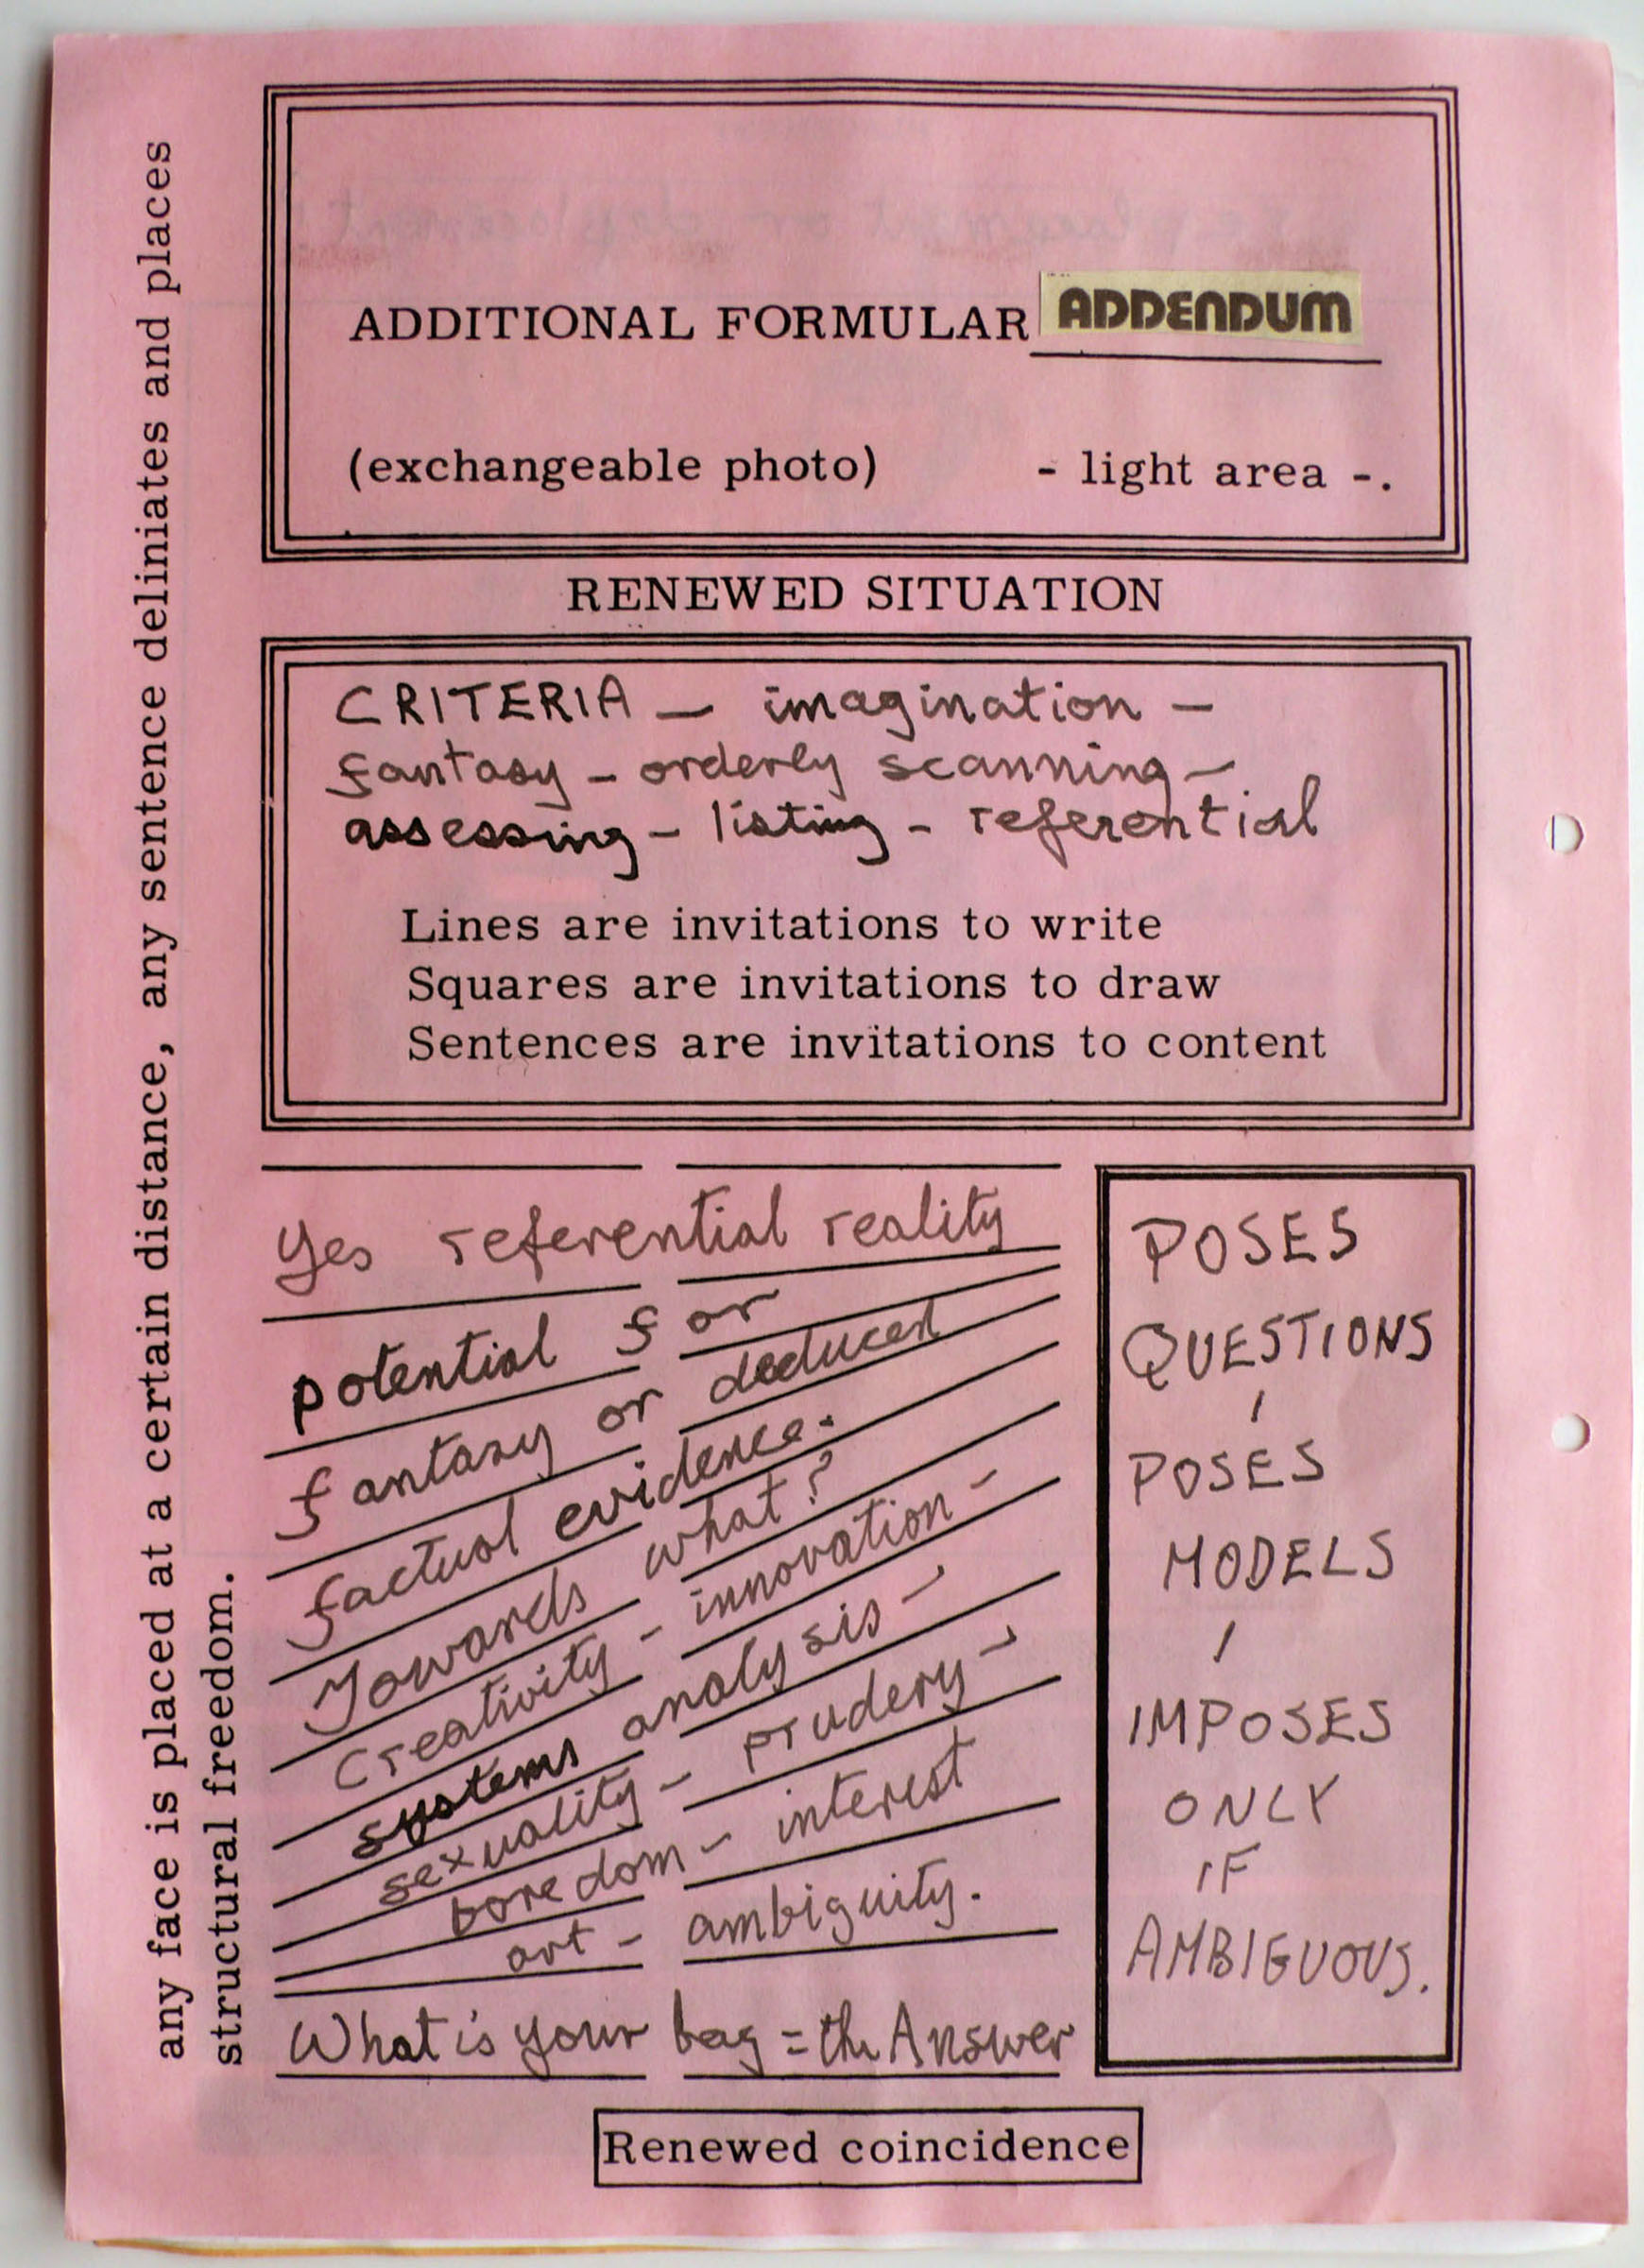 any face is placed at a certain distance, any sentence deliniates and places
structural freedom.
ADDITIONAL FORMULAR ADDENDUM
(exchangeable photo) - light area -.
RENEWED SITUATION
CRITERIA - imagination -
fantasy - orderly scanning -
assessing - listing - referential
Lines are invitations to write
Squares are invitations to draw
Sentences are invitations to content
Yes referential reality
potential for
fantasy or deduced
factual evidence.
Towards what?
Creativity - innovation -
systems analysis -
sexuality - prudery -
boredom - interest
art - ambiguity.
What is your bag = the Answer
POSES
QUESTIONS
/
POSES
MODELS
/
IMPOSES
ONLY
IF
AMBIGUOUS.
Renewed coincidence